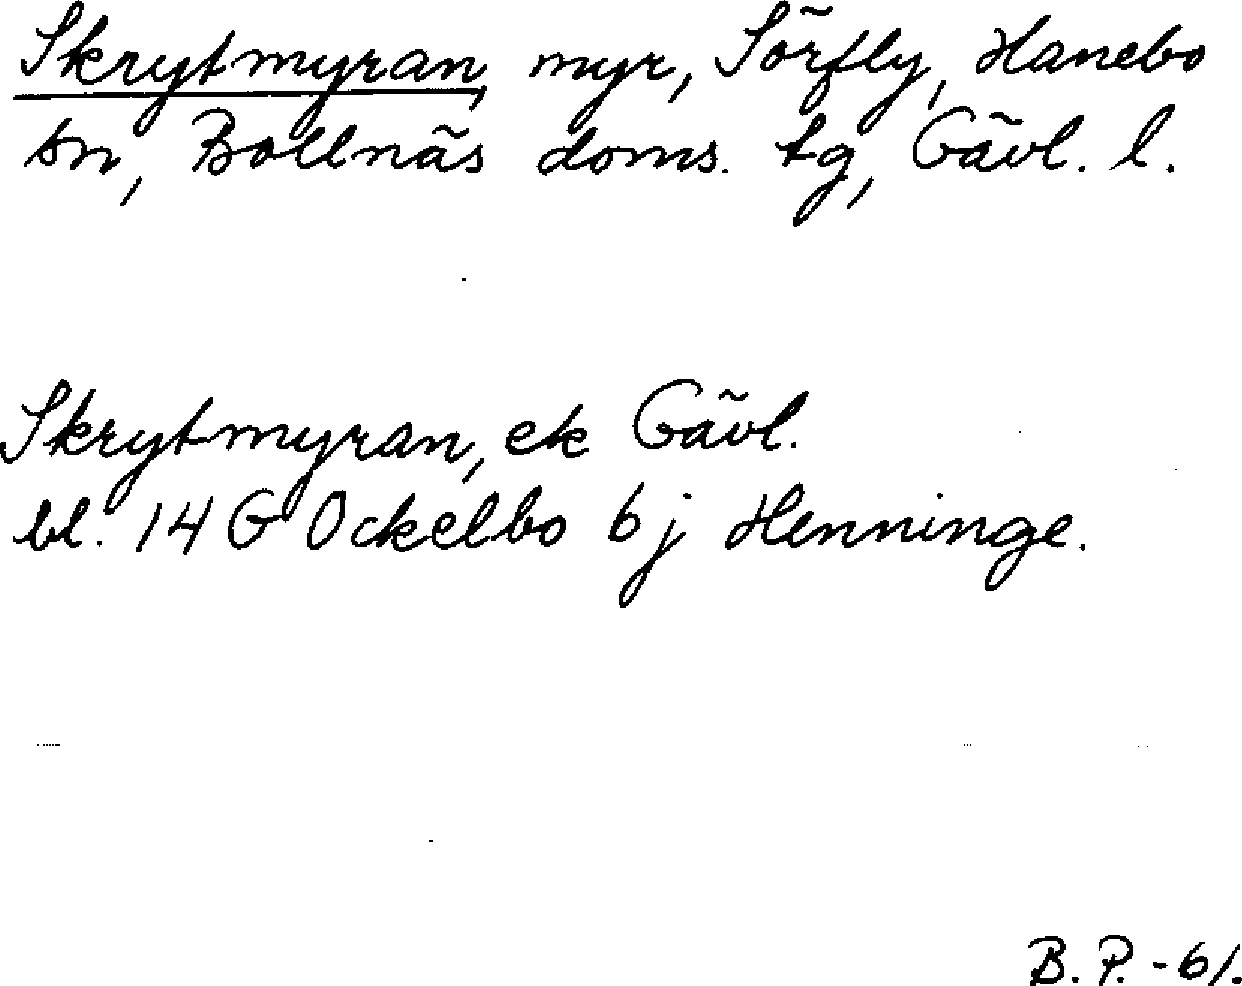 Skrytmyran, myr, Sörfly, Hanebo
sn, Bollnäs doms. tg, Gävl. l.
Skrytmyran, ek Gävl.
bl. 14 G Ockelbo 6 j Henninge.
B. P. - 61.